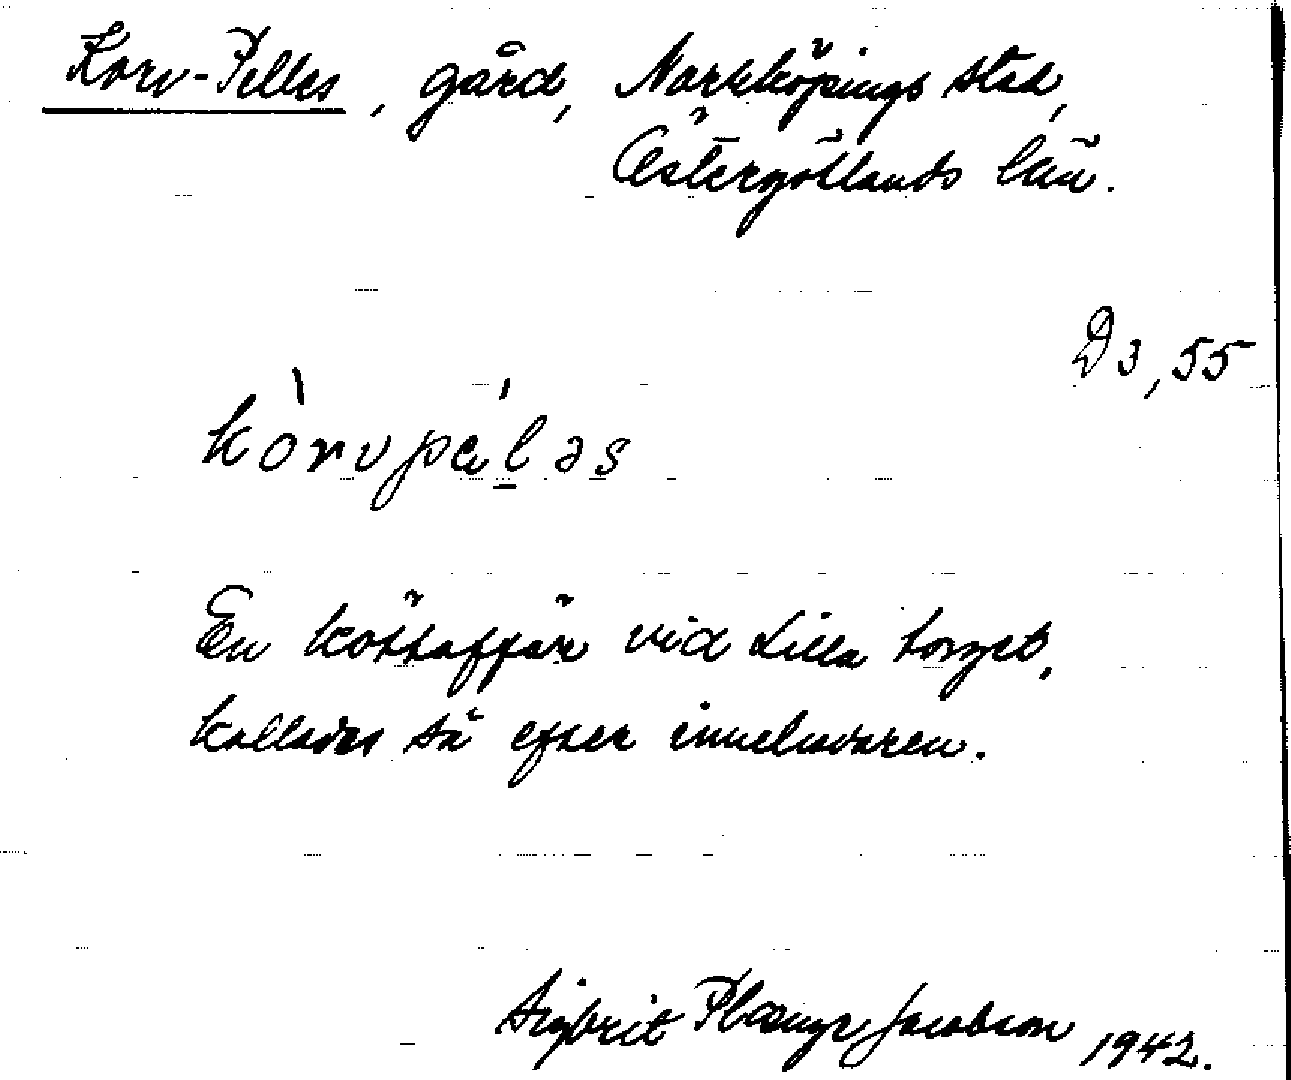 Korv-Pelles, gård, Norrköpings stad,
Östergötlands län.
D3, 55
kòrvpæ̀ləs
En köttaffär vid Lilla torget,
kallades så efter innehavaren.
Sigbrit Plænge Jacobson 1942.